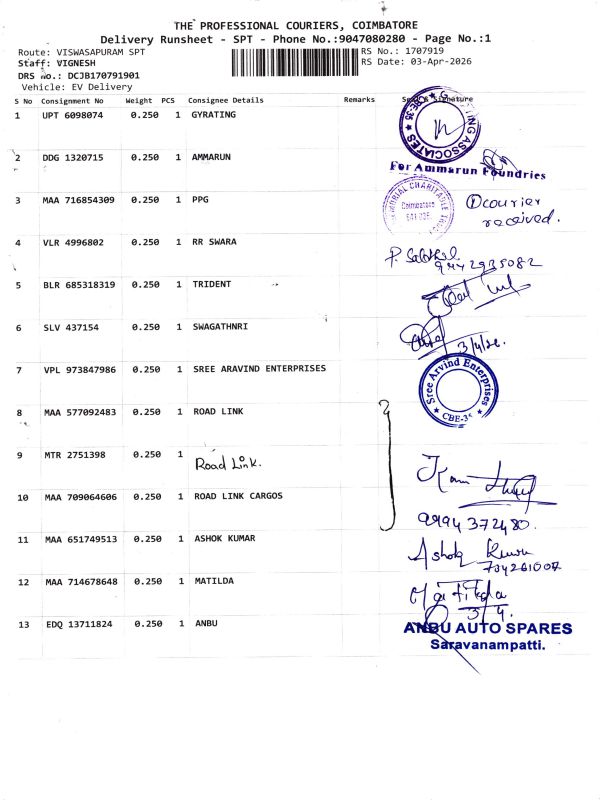 THE PROFESSIONAL COURIERS, COIMBATORE
Delivery Runsheet - SPT - Phone No.:9047080280 - Page No.:1
Route: VISWASAPURAM SPT
RS No.: 1707919
Staff: VIGNESH
RS Date: 03-Apr-2026
DRS No.: DCJB170791901
Vehicle: EV Delivery
S No Consignment No Weight PCS Consignee Details Remarks Signature
1 UPT 6098074 0.250 1 GYRATING
CBE-35 ASSOCIATES
2 DDG 1320715 0.250 1 AMMARUN
For Ammarun Foundries
3 MAA 716854309 0.250 1 PPG
MEMORIAL CHARITABLE TRUST
Coimbatore
641 035
1 courier
received.
4 VLR 4996802 0.250 1 RR SWARA
9442935082
5 BLR 685318319 0.250 1 TRIDENT
6 SLV 437154 0.250 1 SWAGATHNRI
3/4/26.
7 VPL 973847986 0.250 1 SREE ARAVIND ENTERPRISES
Sree Arvind Enterprises
CBE-35
8 MAA 577092483 0.250 1 ROAD LINK
9 MTR 2751398 0.250 1 Road Link.
10 MAA 709064606 0.250 1 ROAD LINK CARGOS
9994372480.
11 MAA 651749513 0.250 1 ASHOK KUMAR
Ashok Kumar
12 MAA 714678648 0.250 1 MATILDA
3/4.
13 EDQ 13711824 0.250 1 ANBU
ANBU AUTO SPARES
Saravanampatti.